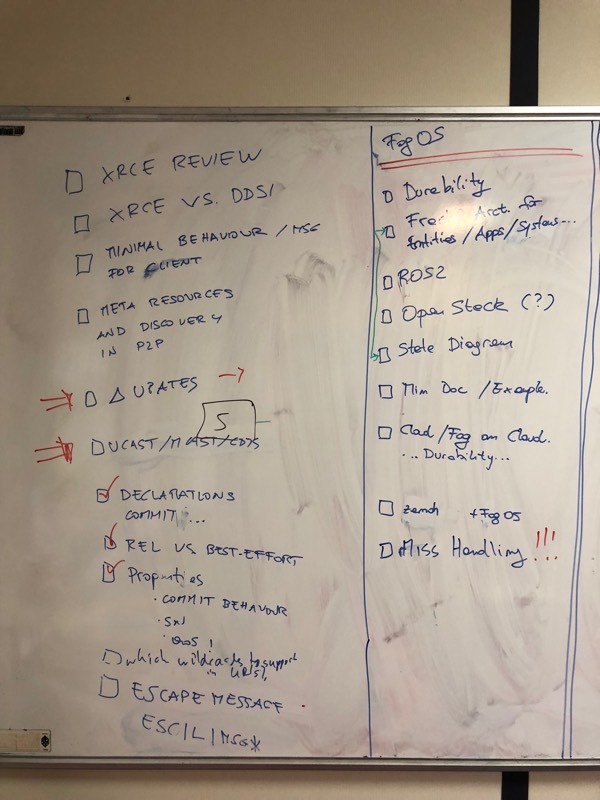 XRCE REVIEW
XRCE VS. DDSI
MINIMAL BEHAVIOUR / MSG
FOR CLIENT
META RESOURCES
AND DISCOVERY
IN P2P
Δ UPDATES →
S
UCAST/MCAST/
DECLARATIONS
COMMIT ...
REL VS. BEST-EFFORT
Properties
· COMMIT BEHAVIOUR
· SN
· QoS !
which wildcards to support
in URIs,
ESCAPE MESSAGE
ESC|L|MSG*
Fog OS
Durability
Arct. for
Entities/Apps/Systems...
ROS2
Open Stack (?)
State Diagram
Min Doc / Example.
Clad/Fog on Cloud.
... Durability...
zenoh + Fog OS
Miss Handling !!!